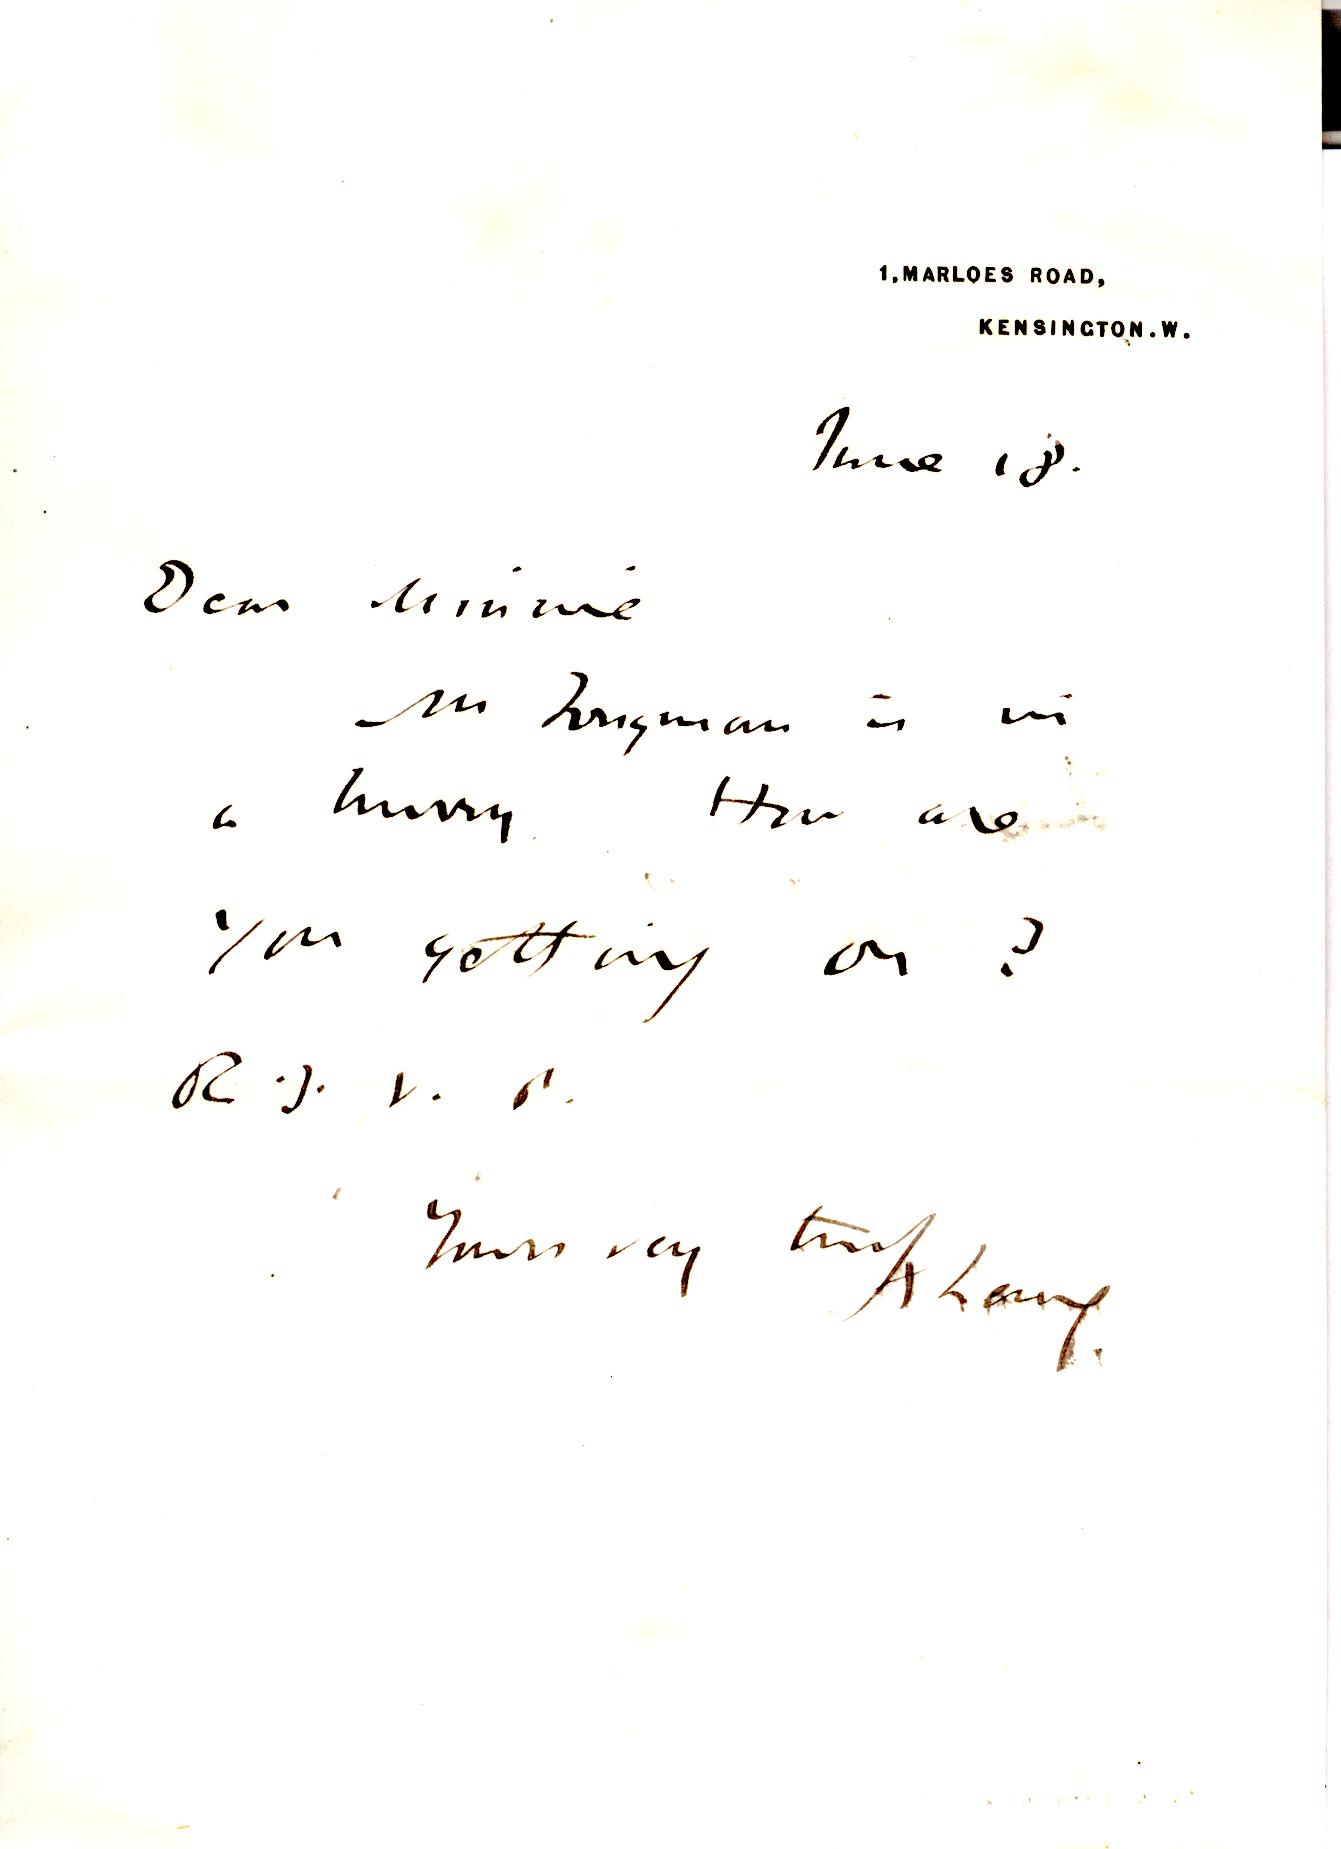 1, MARLOES ROAD,
KENSINGTON. W.
June 18.
Dear Minnie
Mr Longman is in
a hurry How are
you getting on ?
R. S. V. P.
Yours very truly
A Lang.